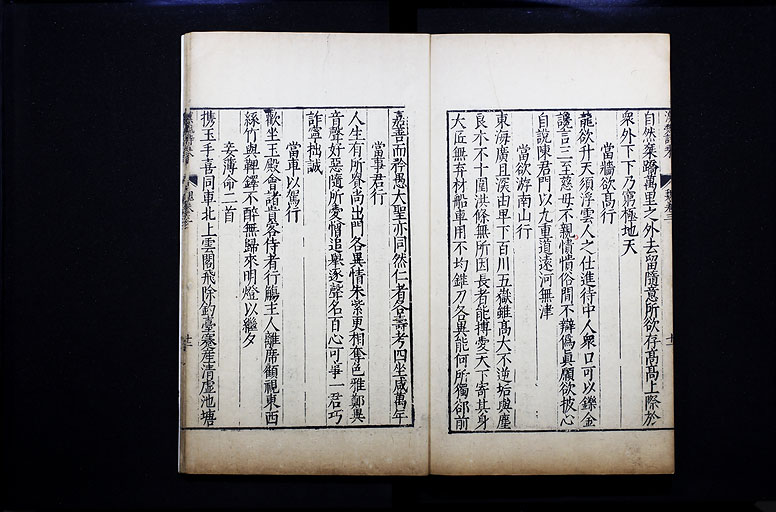 自然乘蹻萬里之外去留隨意所欲存髙髙上際於
衆外下下乃窮極地天
當牆欲髙行
龍欲升天須浮雲人之仕進待中人衆口可以鑠金
讒言三至慈母不親憒憒俗間不辯偽真願欲披心
自說陳君門以九重道遠河無津
當欲游南山行
東海廣且深由卑下百川五嶽雖髙大不逆垢與塵
良木不十圍洪條無所因長者能搏愛天下寄其身
大匠無弃材船車用不均錐刀各異能何所獨卻前
嘉善而矜愚大聖亦同然仁者各壽考四坐咸萬年
當事君行
人生有所貴尚出門各異情朱紫更相奪色雅鄭異
音聲好惡隨所愛憎追舉逐聲名百心可事一君巧
詐寧拙誠
當車以駕行
歡坐玉殿會諸貴客侍者行觴主人離席顧視東西
絲竹與鞞鐸不醉無歸來明燈以繼夕
妾薄命二首
携玉手喜同車北上雲閣飛除釣臺蹇産清虛池塘